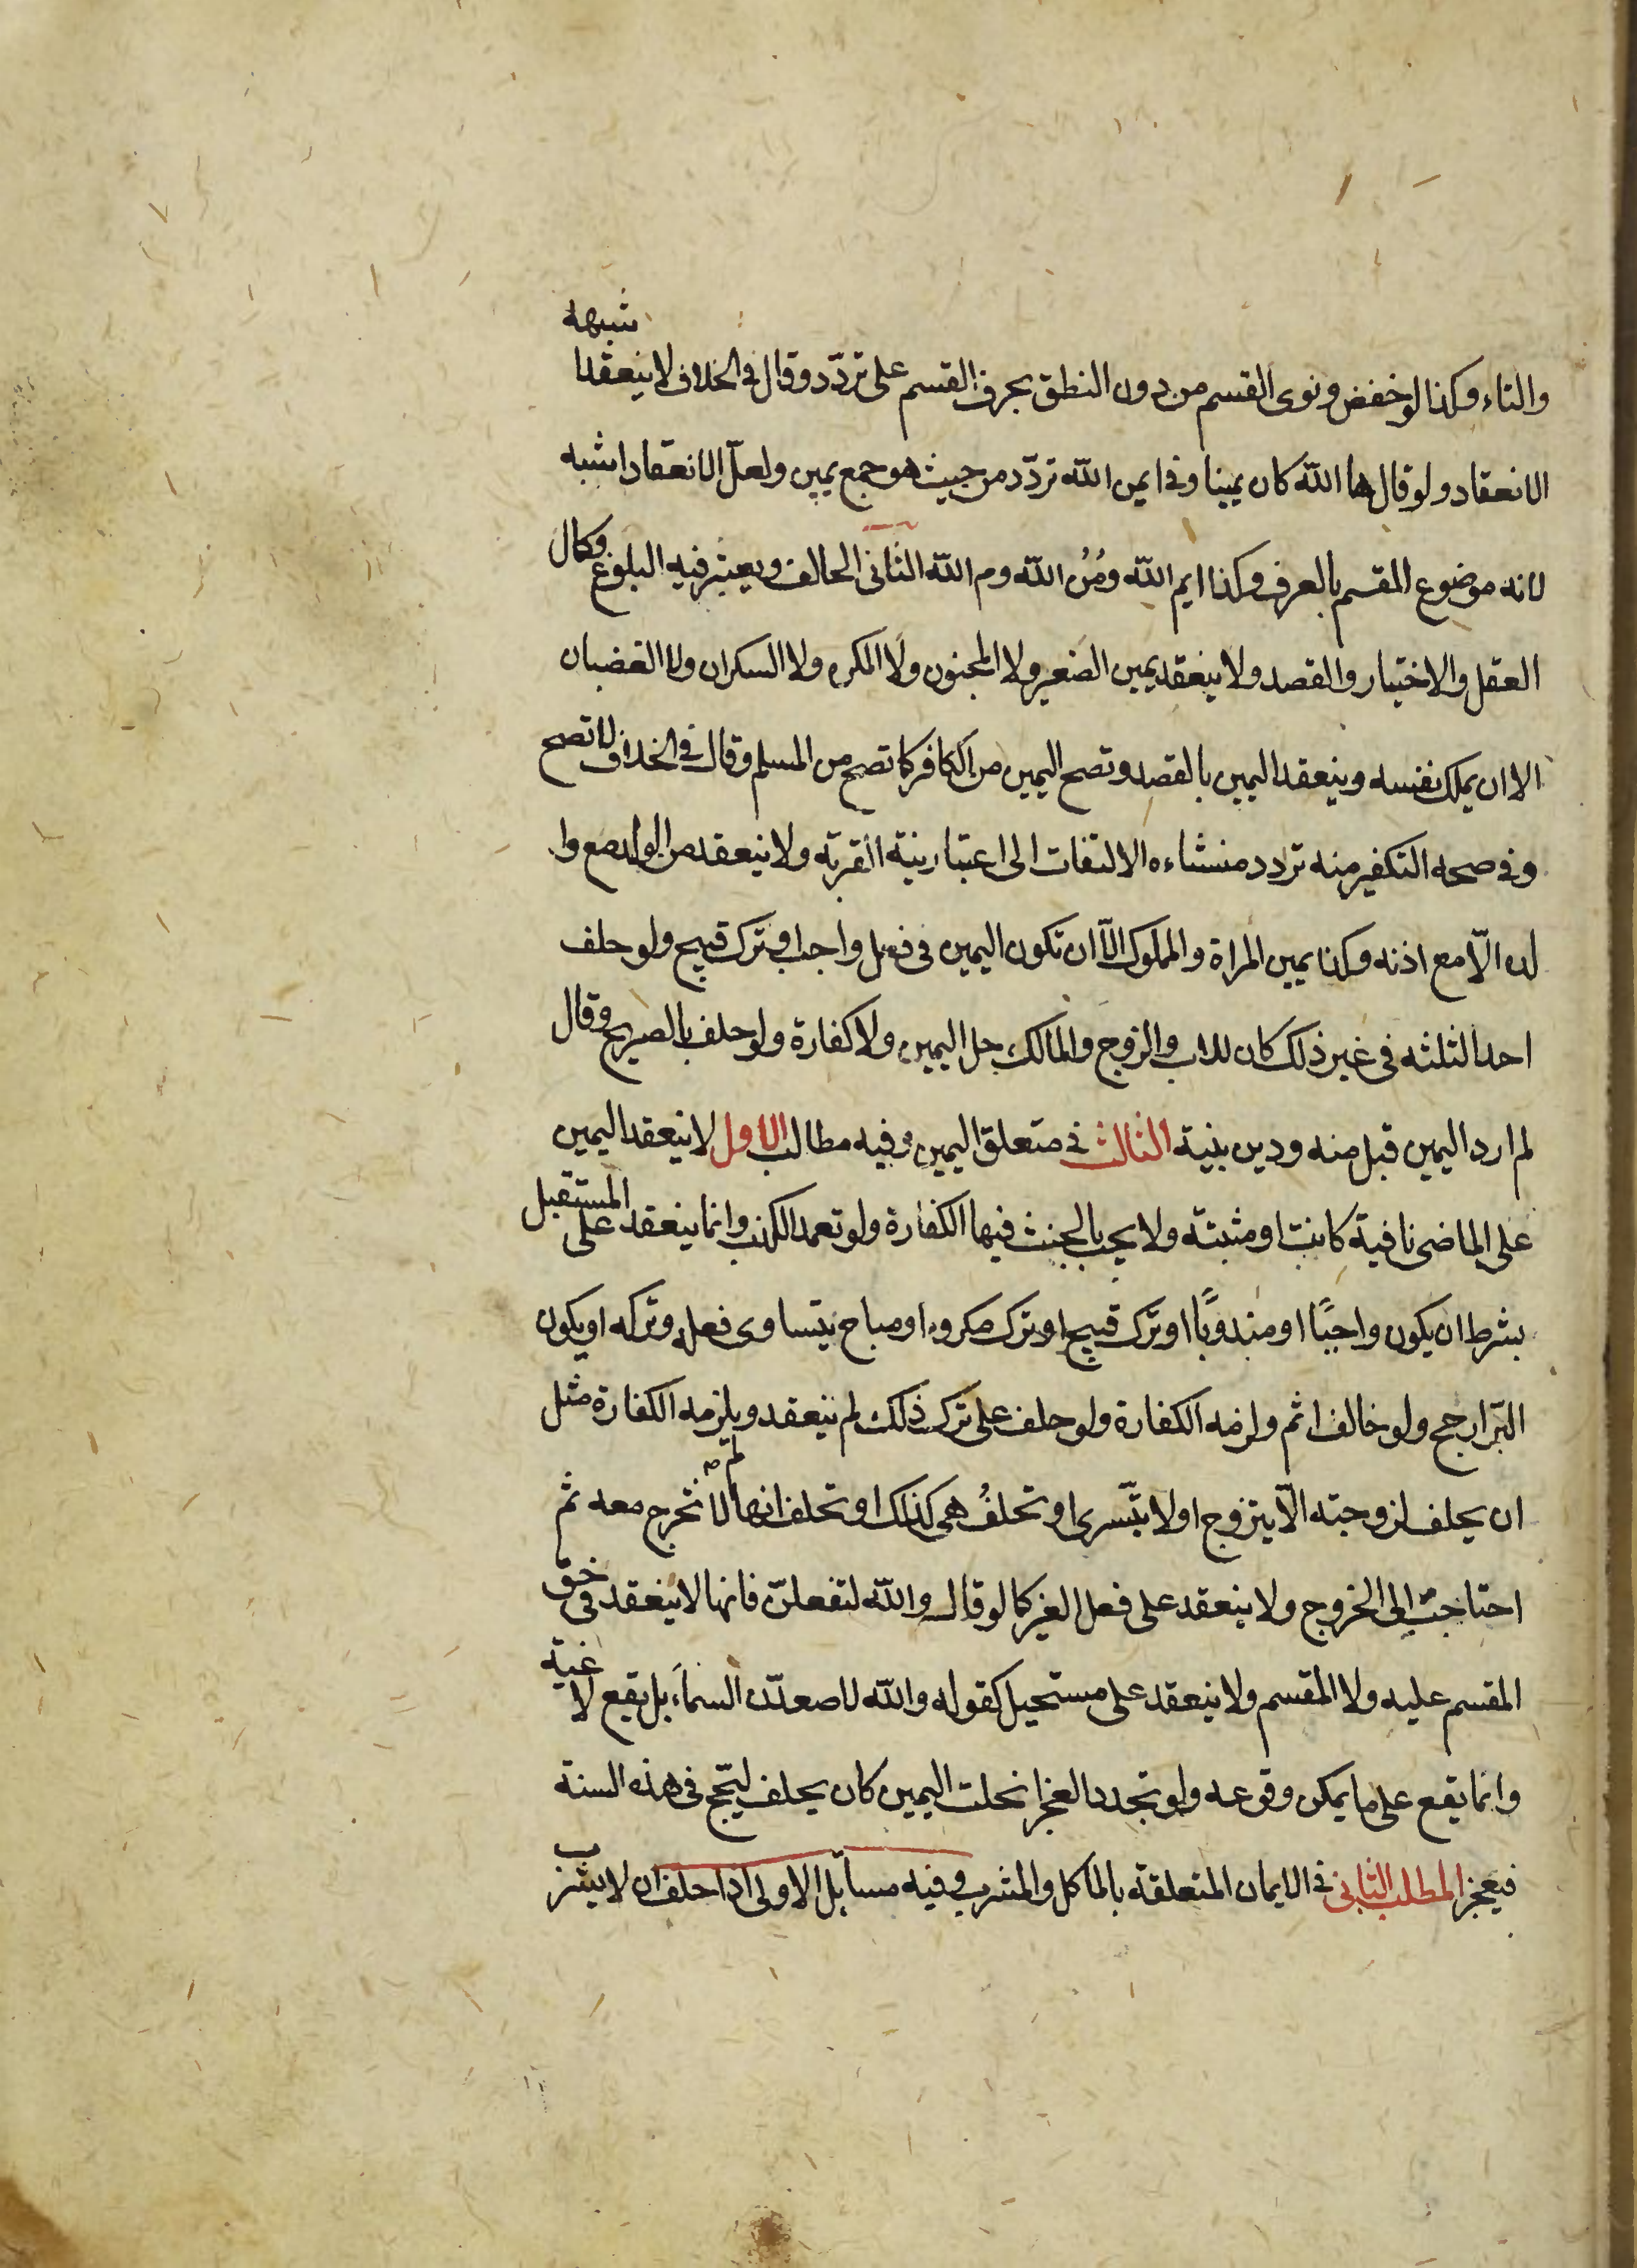 والتاء وكذا لو خفض ونوى القسم من دون النطق بحرف القسم على تردّد وقال في الخلاف لا ينعقد ا شبهه
الانعقاد ولو قال ها الله كان يمينا وفي ايمن الله تردّد من حيث هو جمع يمين ولعلّ الانعقاد اشبه
لانه موضوع القسم بالعرف وكذا ايم الله ومُنُ الله وم الله الثاني الحالف ويعتبر فيه البلوغ وكمال
العقل والاختيار والقصد ولا ينعقد يمين الصغير ولا المجنون ولا المكره ولا السكران ولا الغضبان
الا ان يملك نفسه وينعقد اليمين بالقصد وتصح اليمين من الكافر كما تصح من المسلم وقال في الخلاف لا تصح
وفي صحه التكفير منه تردد منشاءه الالتفات الى اعتبار نية القربة ولا ينعقد من الولد مع وا
لده الّا مع اذنه وكذا يمين المراة والمملوك الّا ان تكون اليمين في فعل واجب او ترك قبيح ولو حلف
احد الثلثه في غير ذلك كان للاب والزوج والمالك حل اليمين ولا كفارة ولو حلف بالصريح وقال
لم ارد اليمين قبل منه ودين بنية الثالث في متعلق اليمين وفيه مطالب الاول لا ينعقد اليمين
على الماضى نافية كانت او مثبتة ولا يجب بالحنث فيها الكفارة ولو تعمد الكذب وانما ينعقد على المستقبل
بشرط ان يكون واجبًا او مندوبًا او ترك قبيح او ترك مكروه او مباح يتساوى فعله وتركه او يكون
البرّ ارجح ولو خالف اثم ولزمه الكفارة ولو حلف على ترك ذلك لم ينعقد ويلزمه الكفارة مثل
ان يحلف لزوجته الّا يتزوج او لا يتّسرى او تحلفُ هي كذلك او تحلف انها لا تخرج معه ثم
احتاجت الى الخروج ولا ينعقد على فعل الغير كما لو قال والله لتفعلنّ فانها لا ينعقد في حق
المقسم عليه ولا المقسم ولا ينعقد على مستحيل كقوله والله لاصعدّن السماء بل يقع لاغية
وانما يقع على ما يمكن وقوعه ولو تجدد العجز انحلت اليمين كان يحلف ليحّج في هذه السنة
فيعجز المطلب الثاني في الايمان المتعلقة بالماكل والمشرب وفيه مسايل الاولى اذا حلف ان لا يشرب